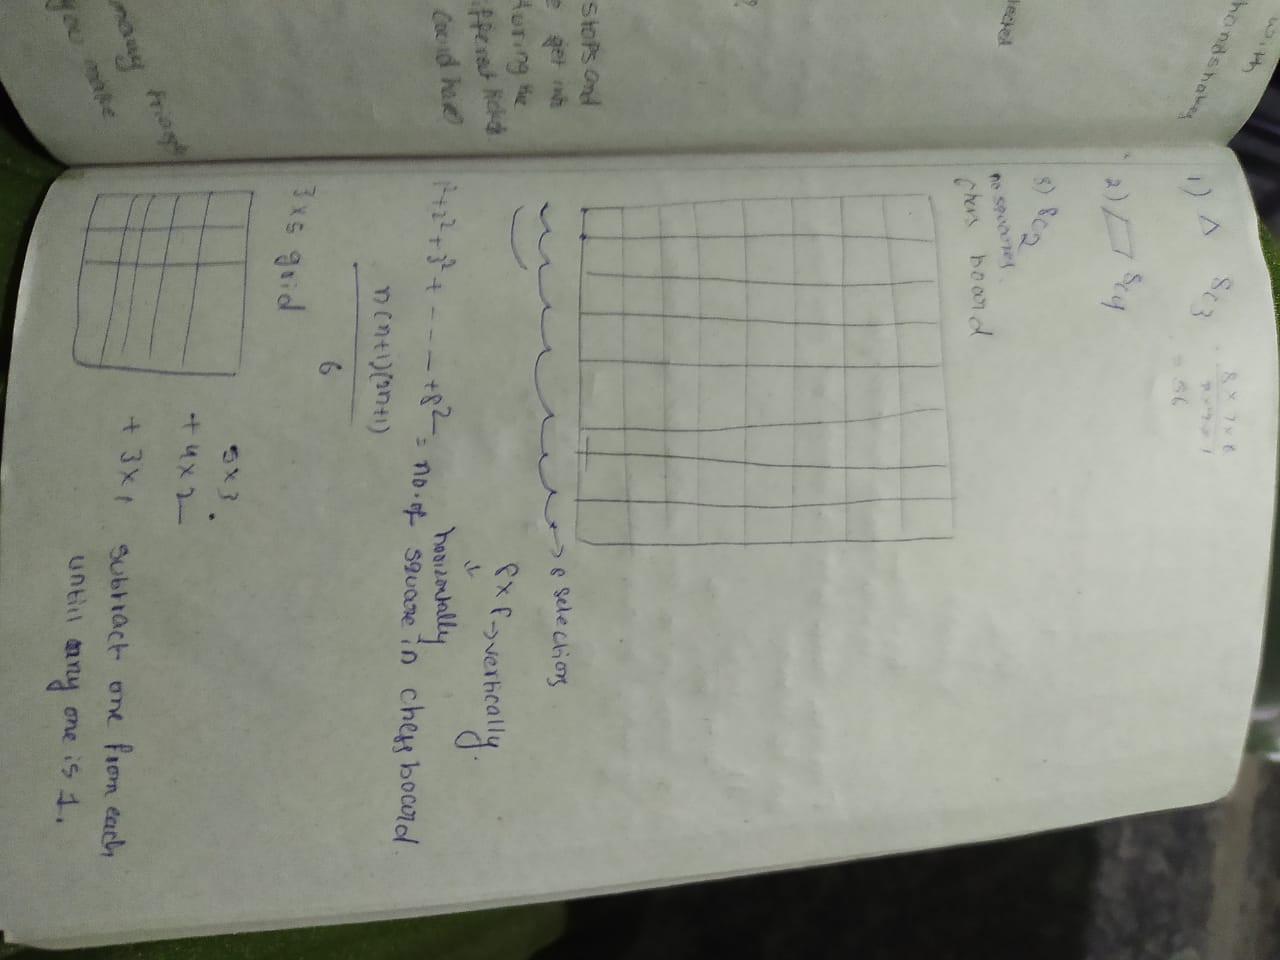 with
handshakes
shops and
get into
during the
different tickets
could have
many triangle
you make
1) △ 8c3 8 × 7 × 6
= 56
2) ▱ 8c4
3) 8c2
no squares
Chess board
→ 8 selections
8 × 8 → vertically.
↓
horizontally
1²+2²+3²+ - - - +8² = no. of square in chess board.
n(n+1)(2n+1)
6
3 x 5 grid
5 x 3
+ 4 x 2
+ 3 x 1 subtract one from each
untill any one is 1.